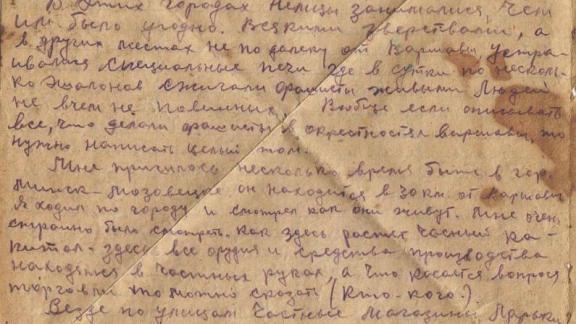 В этих городах немцы занимались, чем
им было угодно. Всякими зверствами, а
в других местах не по далеку от Варшавы устра-
ивались специальные печи где в сутки по несколь-
ко эшалонов сжигали фашисты живыми людей
не в чем не повинных. Вообще если описывать
все, что делали фашисты в окрестностях варшавы, то
нужно написать целый том.
Мне пришлось несколько время быть в гор.
Минск-мозовецке он находится в 30 км. от варшавы
Я ходил по городу и смотрел как они живут. Мне очень
странно было смотреть. Как здесь растет часный ка-
питал - здесь все орудия и средства производства
находятся в частных руках, а что косается вопроса
торговли то можно сказать (кто-кого.).
Везде по улицам частные магазины Ларьки